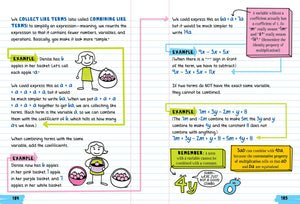 We COLLECT LIKE TERMS (also called COMBINING LIKE
TERMS) to simplify an expression—meaning, we rewrite the
expression so that it contains fewer numbers, variables, and
operations. Basically, you make it look more "simple."
EXAMPLE: Denise has 6
apples in her basket. Let's call
each apple "a."
We could express this as a + a + a + a + a + a, but it
would be much simpler to write 6a. When we put
a + a + a + a + a + a together to get 6a, we are collecting like
terms. (Each term is the variable a, so we can combine
them with the coefficient of 6, which tells us how many
a's we have.)
When combining terms with the same
variable, add the coefficients.
EXAMPLE: Denise now has 6
apples in her purple basket, 1 apple
in her white basket
184
We could express this as 6a + a + 7a
but it would be much simpler to
write 14a.
A variable without a
coefficient actually has
a coefficient of 1. So
"m" really means "1m"
and "k³" really means
"1k³." (Remember
the identity property of
multiplication!)
EXAMPLE: 9x - 3x + 5x
(When there is a "-" sign in front
of the term, we have to subtract.)
9x - 3x + 5x = 11x
If two terms do NOT have the exact same variable,
they cannot be combined.
EXAMPLE: 7m + 3y - 2m + y + 8
(The 7m and -2m combine to make 5m, the 3y and y
combine to make 4y, and the constant 8 does not
combine with anything.)
7m + 3y - 2m + y + 8 = 5m + 4y + 8
REMEMBER: A term with a
variable cannot be combined
with a constant.
4y
SORRY,
WE'RE JUST
NOT A GOOD
COMBO.
8
3ab can combine with 4ba,
because the commutative property
of multiplication tells us that ab
and ba are equivalent.
185